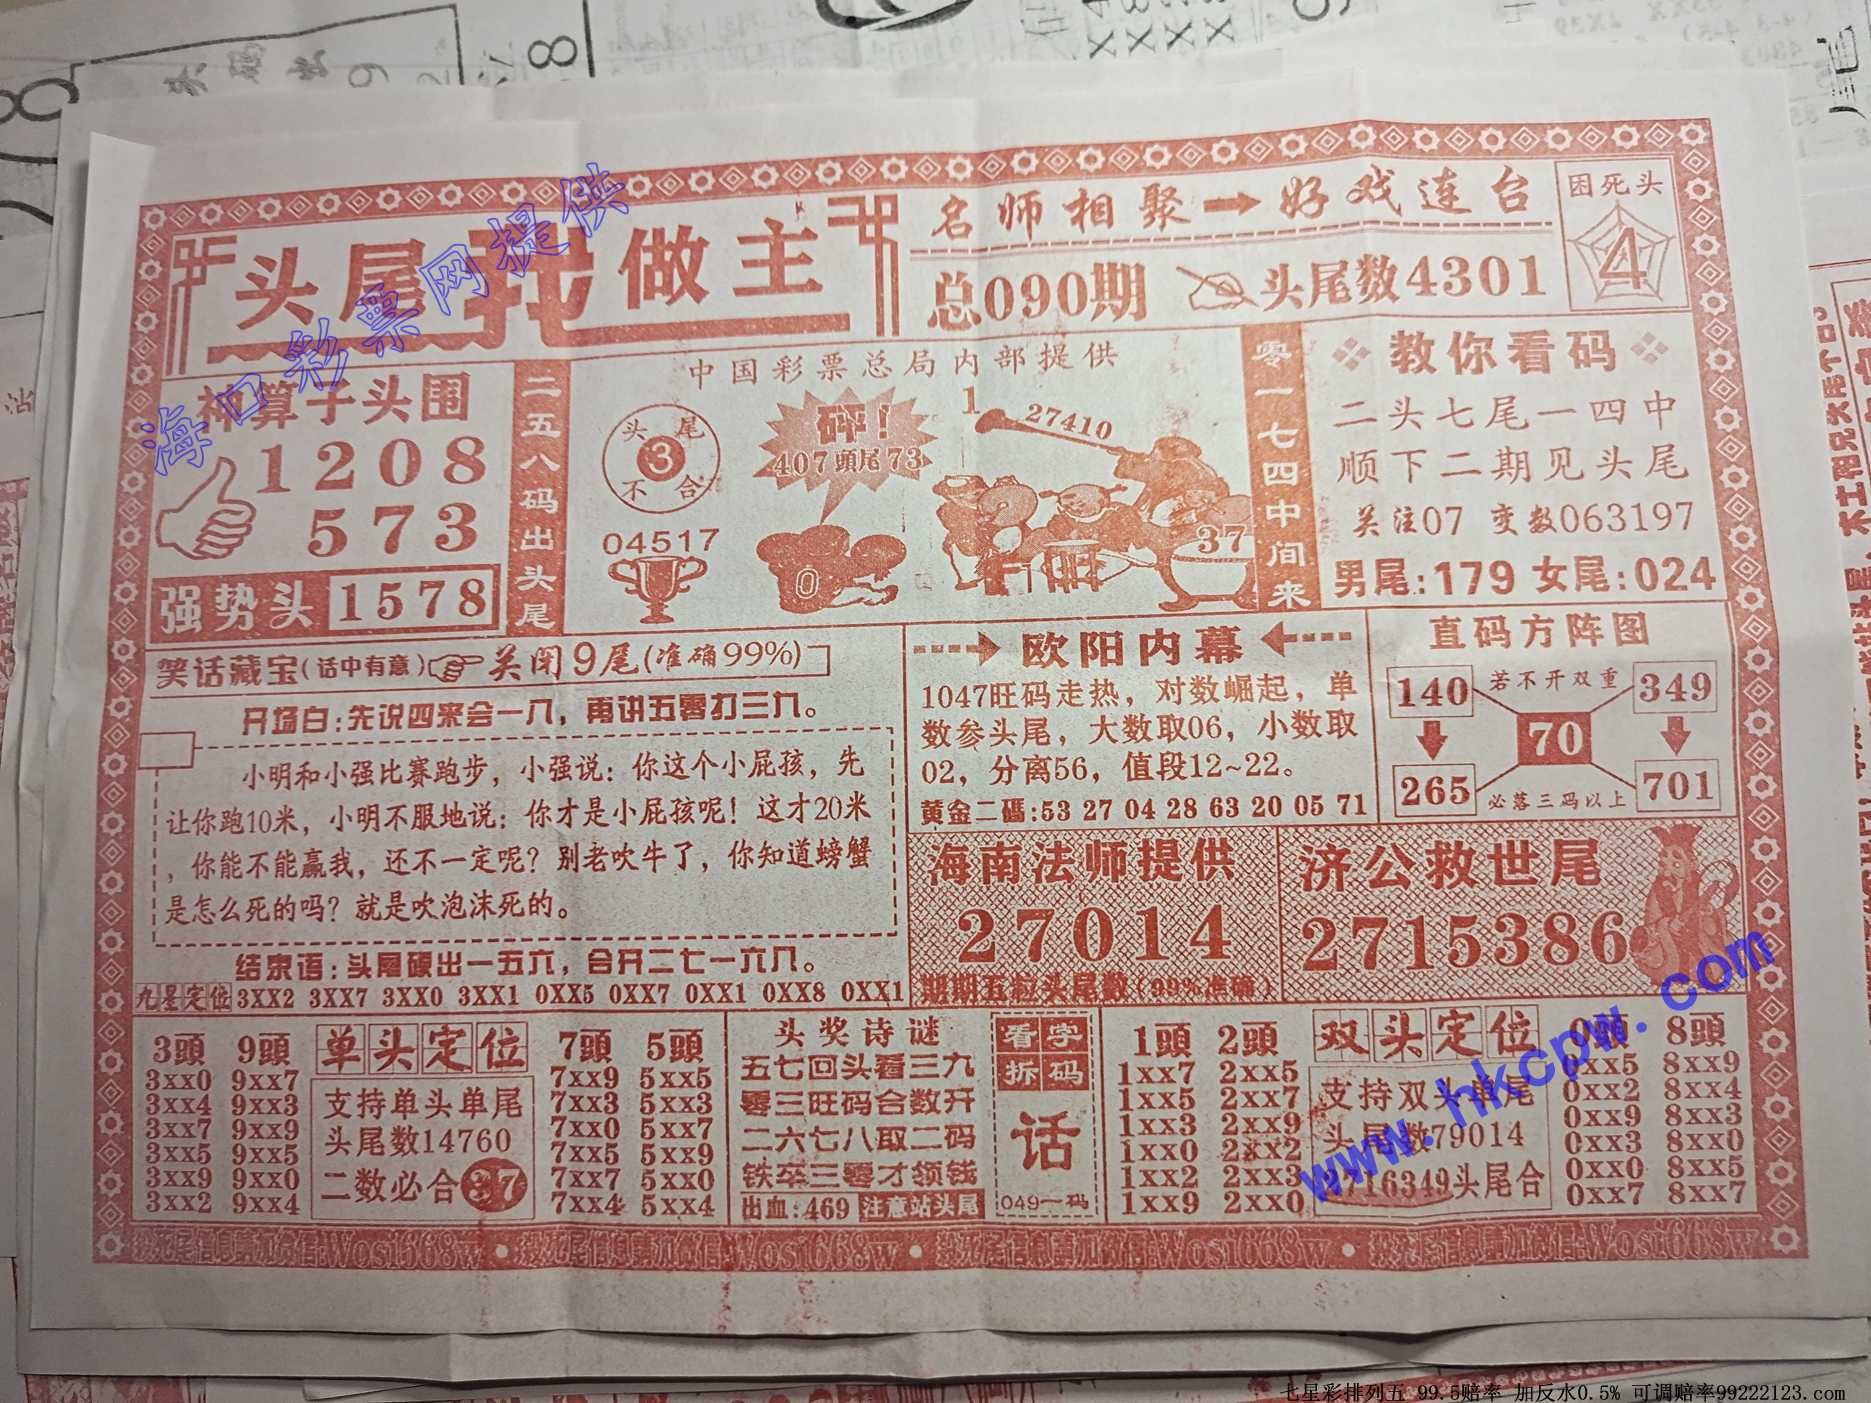 头尾我做主
名师相聚→好戏连台
总090期 头尾数4301
困死头
4
神算子头围
1208
573
强势头 1578
二五八码出头尾
中国彩票总局内部提供
头尾
3
不合
04517
砰!
407頭尾73
0
1
27410
37
零一七四中间来
教你看码
二头七尾一四中
顺下二期见头尾
关注07 变数063197
男尾:179 女尾:024
笑话藏宝(话中有意) 关闭9尾(准确99%)
开场白:先说四来会一八,再讲五零打三九。
小明和小强比赛跑步,小强说:你这个小屁孩,先
让你跑10米,小明不服地说:你才是小屁孩呢!这才20米
,你能不能赢我,还不一定呢?别老吹牛了,你知道螃蟹
是怎么死的吗?就是吹泡沫死的。
结束语:头尾硬出一五六,合开二七一六八。
九星定位 3XX2 3XX7 3XX0 3XX1 0XX5 0XX7 0XX1 0XX8 0XX1
欧阳内幕
1047旺码走热,对数崛起,单
数参头尾,大数取06,小数取
02,分离56,值段12~22。
黄金二碼:53 27 04 28 63 20 05 71
直码方阵图
140 若不开双重 349
70
265 必落三码以上 701
海南法师提供
27014
期期五粒头尾数(99%准确)
济公救世尾
2715386
3頭 9頭
3xx0 9xx7
3xx4 9xx3
3xx7 9xx9
3xx5 9xx5
3xx9 9xx0
3xx2 9xx4
单头定位
支持单头单尾
头尾数14760
二数必合37
7頭 5頭
7xx9 5xx5
7xx3 5xx3
7xx0 5xx7
7xx5 5xx9
7xx7 5xx0
7xx4 5xx4
头奖诗谜
五七回头看三九
零三旺码合数开
二六七八取二码
铁卒三零才领钱
出血:469 注意站头尾
看字
拆码
话
049一码
1頭 2頭
1xx7 2xx5
1xx5 2xx7
1xx3 2xx9
1xx0 2xx2
1xx2 2xx3
1xx9 2xx0
双头定位
支持双头单尾
头尾数79014
716349头尾合
0頭 8頭
0xx5 8xx9
0xx2 8xx4
0xx9 8xx3
0xx3 8xx0
0xx0 8xx5
0xx7 8xx7
Wosi668w
海口彩票网提供
www.hkcpw.com
七星彩排列五 99.5赔率 加反水0.5% 可调赔率99222123.com